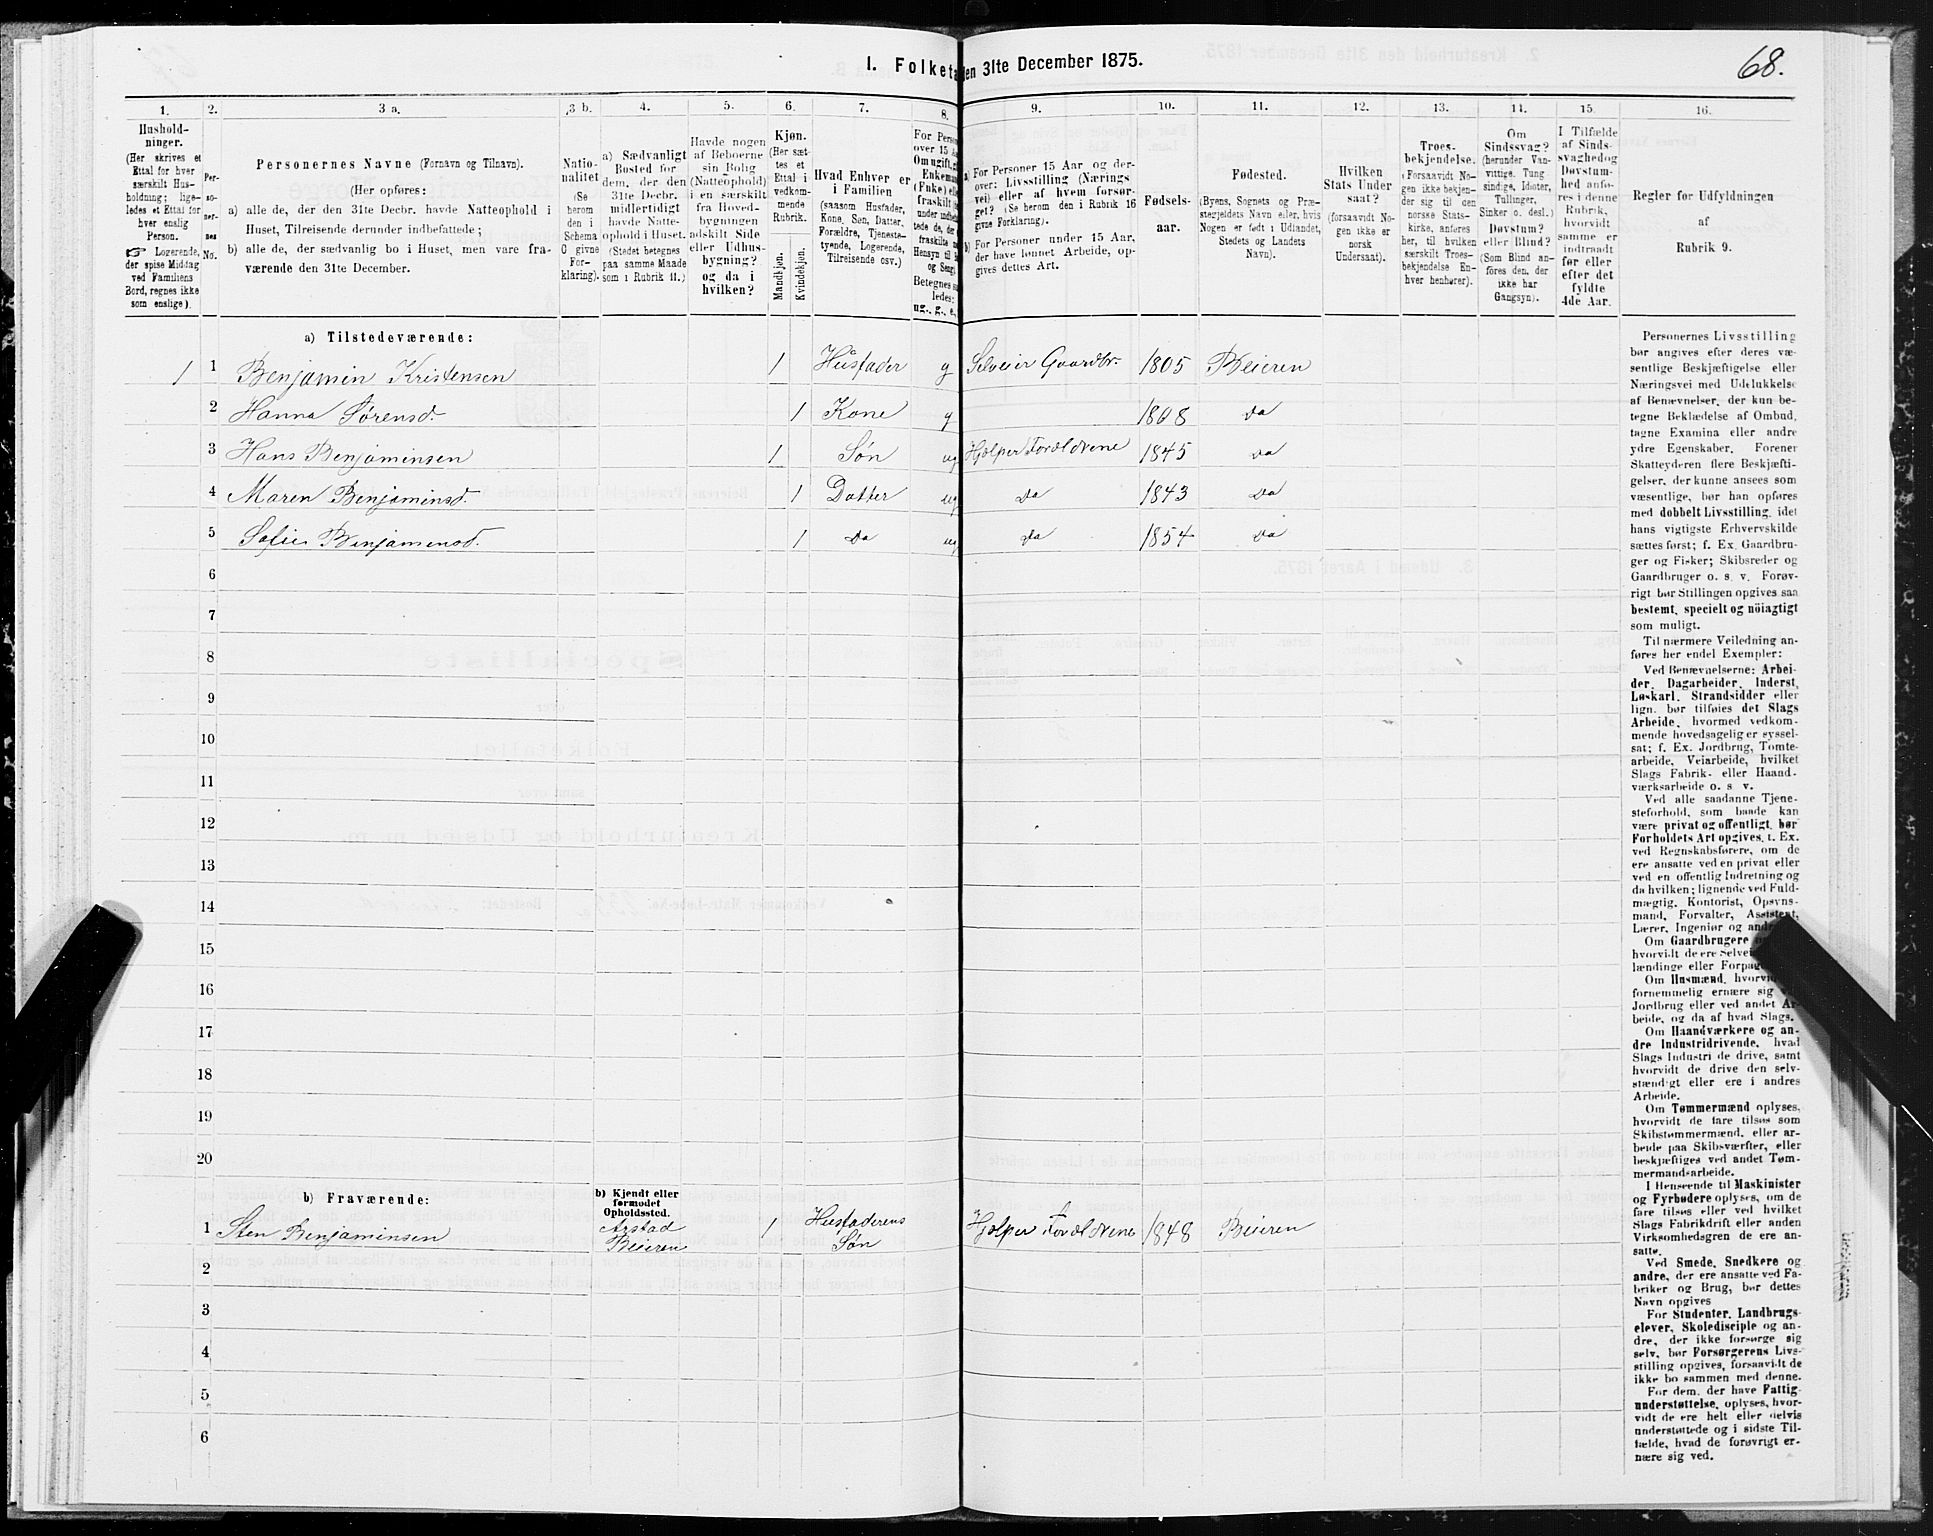 68.
I. Folketa den 31te December 1875.
1. 2. 3 a. 3 b. 4. 5. 6. 7. 8. 9. 10. 11. 12. 13. 14. 15. 16.
Hushold-
ninger.
(Her skrives et
Ettal for hver
særskilt Hus-
holdning; lige-
ledes et Ettal for
hver enslig
Person.
☞ Logerende,
der spise Middag
ved Familiens
Bord, regnes ikke
som enslige).
Per-
so-
ner-
nes
No.
Personernes Navne (Fornavn og Tilnavn).
(Her opføres:
a) alle de, der den 31te Decbr. havde Natteophold i
Huset, Tilreisende derunder indbefattede;
b) alle de, der sædvanlig bo i Huset, men vare fra-
værende den 31te December.
Natio-
nalitet
(Se
herom
den i
Schema
C givne
For-
klaring).
a) Sædvanligt
Bosted for
dem, der den
31te Decbr.
midlertidigt
havde Natte-
ophold i Huset.
(Stedet betegnes
paa samme Maade
som i Rubrik 11.)
Havde nogen
af Beboerne
sin Bolig
(Natteophold)
i en særskilt
fra Hoved-
bygningen
adskilt Side
eller Udhus-
bygning?
og da i
hvilken?
Kjøn.
(Her sæt-
tes et
Ettal i
vedkom-
mende
Rubrik.
Mandkjøn.
Kvindekjøn.
Hvad Enhver er
i Familien
(saasom Husfader,
Kone, Søn, Datter,
Forældre, Tjeneste-
tyende, Logerende,
Tilreisende osv.)
For Perso
over 15 A
Om ugift, g
Enkema
(Fnke) ell
fraskilt
under indbe
tede de, de
fraskilte
Hensyn til B
og Seng
Betegnes s
ledes:
ug., g., e.,
a) For Personer 15 Aar og der-
over: Livsstilling (Nærings-
vei) eller af hvem forsør-
get? (Se herom den i Rubrik 16
givne Forklaring).
b) For Personer under 15 Aar,
der have lønnet Arbeide, op-
gives dettes Art.
Fødsels-
aar.
Fødested.
(Byens, Sognets og Præ-
stegjeldets Navn eller, hvis
Nogen er født i Udlandet,
Stedets og Landets
Navn).
Hvilken
Stats Under
saat?
(forsaavidt No-
gen ikke er
norsk
Undersaat).
Troes-
bekjendelse.
(Forsaavidt No-
gen ikke bekjen-
der sig til den
norske Stats-
kirke, anføres
her, til hvilken
særskilt Troes-
bekjendelse En-
hver henhører).
Om
Sindssvag?
(herunder Van-
vittige, Tung
sindige, Idioter,
Tullinger,
Sinker o. desl.)
Døvstum?
eller Blind?
(Som Blind an-
føres den, der
ikke har
Gangsyn).
I Tilfælde
af Sinds-
svaghed og
Døvstum-
hed anfø-
res i denne
Rubrik,
hvorvidt
samme er
indtraadt
før eller
efter det
fyldte
4de Aar.
Regler for Udfyldningen
af
Rubrik 9.
a) Tilstedeværende:
1 1 Benjamin Kristensen 1 Husfader g Selveier Gaardbr. 1805 Beieren
2 Hanna Sørensd. 1 Kone g 1808 Do
3 Hans Benjaminsen 1 Søn ug Hjelper Forældrene 1845 Do
4 Maren Benjaminsd. 1 Datter ug Do 1843 Do
5 Sofie Benjaminsd. 1 Do ug Do 1854 Do
6
7
8
9
10
11
12
13
14
15
16
17
18
19
20
b) Fraværende:
b) Kjendt eller
formodet
Opholdssted.
1 Sten Benjaminsen Arstad 1 Husfaderens Hjelper Forældrene 1848 Beieren
Beieren Søn
2
3
4
5
6
Personernes Livsstilling
bør angives efter deres væ-
sentlige Beskjæftigelse eller
Næringsvei med Udelukkelse
af Benævnelser, der kun be-
tegne Beklædelse af Ombud,
tagne Examina eller andre
ydre Egenskaber. Forener
Skatteyderen flere Beskjæfti-
gelser, der kunne ansees som
væsentlige, bør han opføres
med dobbelt Livsstilling, idet
hans vigtigste Erhvervskilde
sættes først; f. Ex. Gaardbru-
ger og Fisker; Skibsreder og
Gaardbruger o. s. v. Forøv-
rigt bør Stillingen opgives saa
bestemt, specielt og nöiagtigt
som muligt.
Til nærmere Veiledning an-
føres her endel Exempler:
Ved Benævnelserne: Arbei-
der, Dagarbeider, Inderst,
Løskarl, Strandsidder eller
lign. bør tilføies det Slags
Arbeide, hvormed vedkom-
mende hovedsagelig er syssel-
sat; f. Ex. Jordbrug, Tomte-
arbeide, Veiarbeide, hvilket
Slags Fabrik- eller Haand-
værksarbeide o. s. v.
Ved alle saadanne Tjene-
steforhold, som baade kan
være privat og offentligt, bør
Forholdets Art opgives, t. Ex.
ved Regnskabsførere, om de
ere ansatte ved en privat eller
ved en offentlig Indretning og
da hvilken; lignende ved Fuld-
mægtig, Kontorist, Opsyns-
mand, Forvalter, Assistent,
Lærer, Ingeniør og andre
Om Gaardbrugere
hvorvidt de ere Selvei
lændinge eller Forpag
Om Husmænd, hvorvidt
fornemmelig ernære sig
Jordbrug eller ved andet Ar-
beide, og da af hvad Slags.
Om Haandværkere og an-
dre Industridrivende, hvad
Slags Industri de drive, samt
hvorvidt de drive den selv-
stændigt eller ere i andres
Arbeide.
Om Tømmermænd oplyses,
hvorvidt de fare tilsøs som
Skibstømmermænd, eller ar-
beide paa Skibsværfter, eller
beskjæftiges ved andet Tøm-
mermandsarbeide.
I Henseende til Maskinister
og Fyrbødere oplyses, om de
fare tilsøs eller ved hvilket
Slags Fabrikdrift eller anden
Virksomhedsgren de ere an-
satte.
Ved Smede, Snedkere og
andre, der ere ansatte ved Fa-
briker og Brug, bør dettes
Navn opgives
For Studenter, Landbrugs-
elever, Skoledisciple og an-
dre, der ikke forsørge sig
selv, bør Forsørgerens Livs-
stilling opgives, forsaavidt de
ikke bo sammen med denne.
For dem, der have Fattig-
understøttelse, oplyses, hvor-
vidt de ere helt eller delvis
understøttede og i sidste Til-
fælde, hvad de forøvrigt er-
nære sig ved.